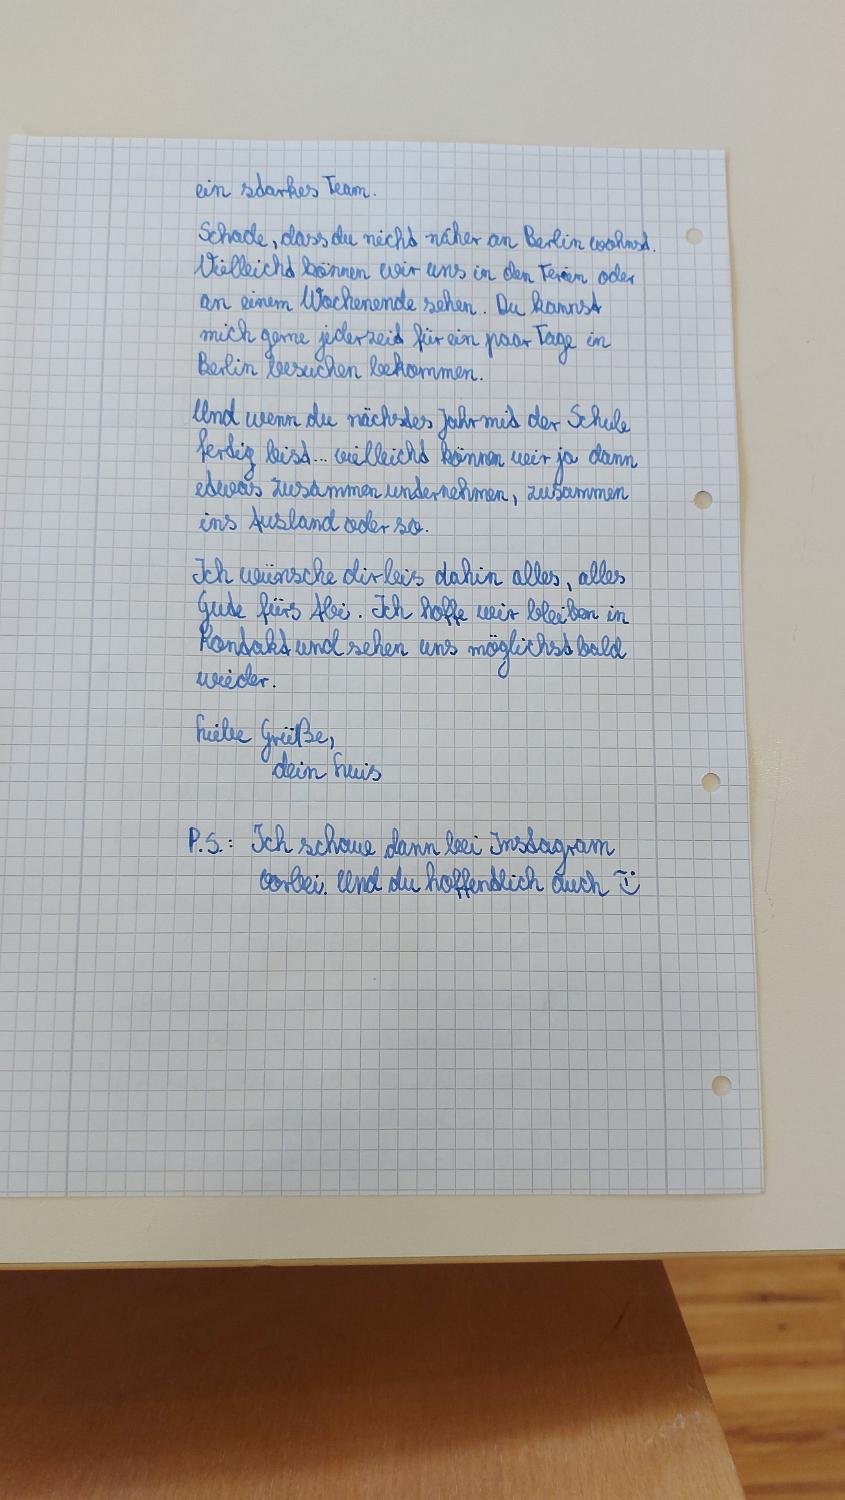 ein starkes Team.
Schade, dass du nicht näher an Berlin wohnst.
Vielleicht können wir uns in den Ferien oder
an einem Wochenende sehen. Du kannst
mich gerne jederzeit für ein paar Tage in
Berlin besuchen bekommen.
Und wenn du nächstes Jahr mit der Schule
fertig bist... vielleicht können wir ja dann
etwas zusammen unternehmen, zusammen
ins Ausland oder so.
Ich wünsche dir bis dahin alles, alles
Gute fürs Abi. Ich hoffe wir bleiben in
Kontakt und sehen uns möglichst bald
wieder.
Liebe Grüße,
dein Luis
P.S.: Ich schaue dann bei Instagram
vorbei. Und du hoffentlich auch :)